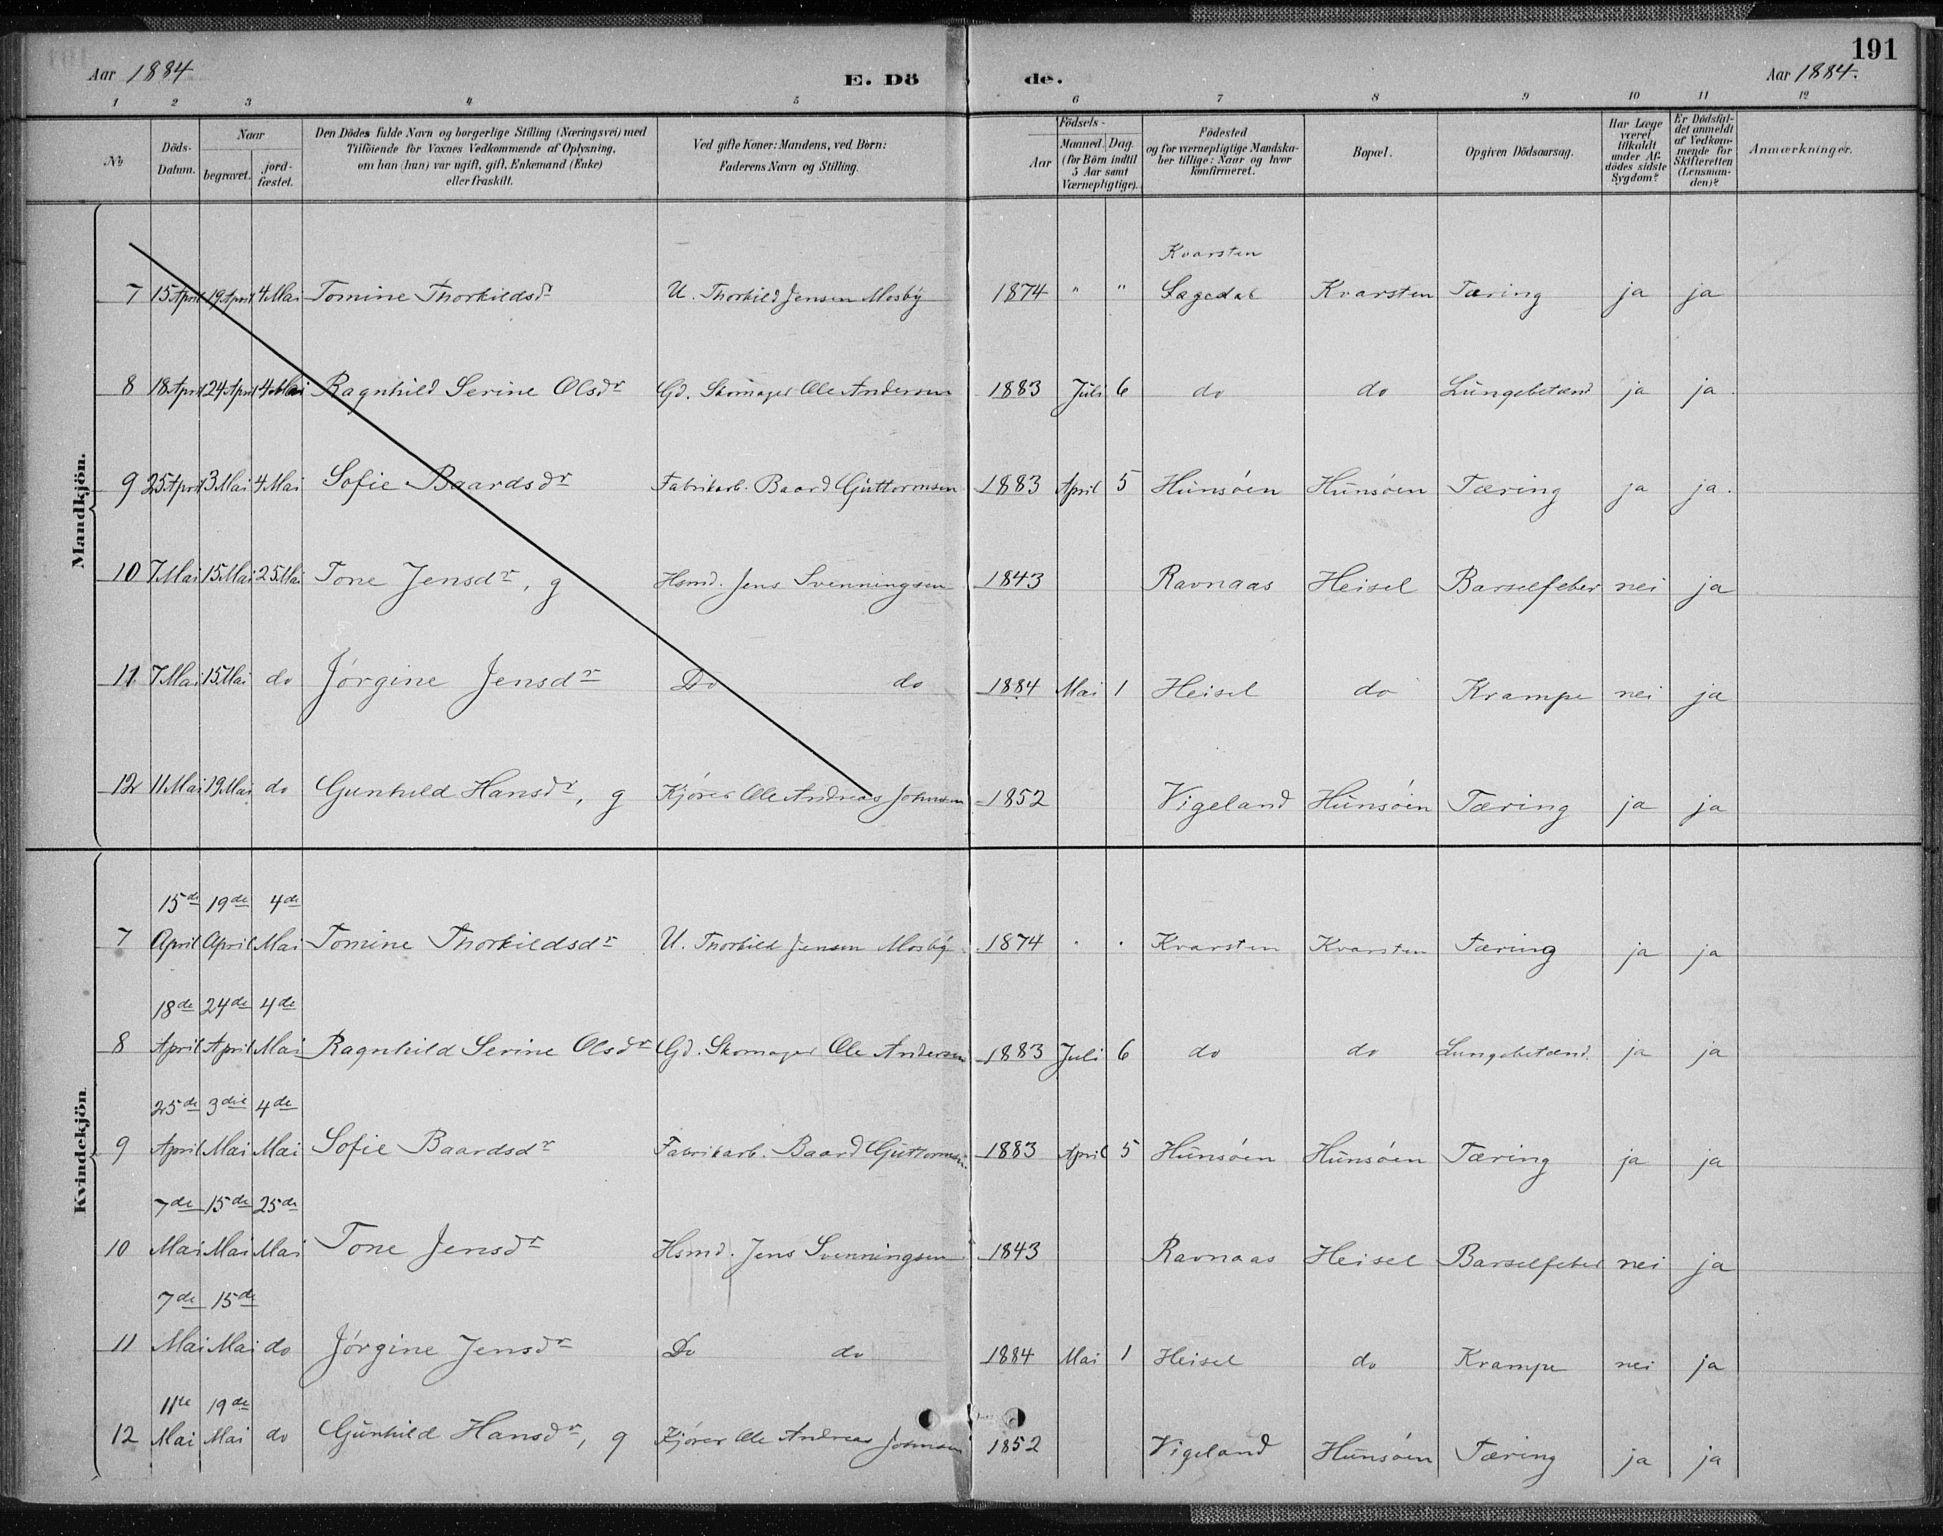 191
Aar 1884 E. Dö de. Aar 1884.
1 2 3 4 5 6 7 8 9 10 11 12
No Döds-Datum. Naar begravet. jord-fæstet. Den Dödes fulde Navn og borgerlige Stilling (Næringsvei) med Tilföiende for Voxnes Vedkommende af Oplysning, om han (hun) var ugift, gift, Enkemand (Enke) eller fraskilt. Ved gifte Koner: Mandens, ved Börn: Faderens Navn og Stilling. Födsels- Aar Maaned. Dag. (for Börn indtil 5 Aar samt Værnepligtige). Födested og for værnepligtige Mandska-ber tillige: Naar og hvor konfirmeret. Bopæl. Opgiven Dödsaarsag. Har Læge været tilkaldt under Af-dödes sidste Sygdom? Er Dödsfal-det anmeldt af Vedkom-mende for Skifteretten (Lensman-den)? Anmærkninger.
Mandkjön.
Kvarsten
7 15 April 19 April 4 Mai Tomine Thorkildsdr U. Thorkild Jensen Mosbÿ 1874 " " Kvarsten Tæring ja ja
8 18 April 24 April 4 Mai Ragnhild Serine Olsdr Gd. Skomager Ole Andersen 1883 Juli 6 do do Lungebetænd ja ja.
9 25 April 3 Mai 4 Mai Sofie Baardsdr Fabrikarb. Baard Guttormsen 1883 April 5 Hunsøen Hunsøen Tæring ja ja.
10 7 Mai 15 Mai 25 Mai Tone Jensdr, g Hsmd. Jens Svenningsen 1843 Ravnaas Heisel Barselfeber nei ja
11 7 Mai 15 Mai do Jørgine Jensdr Do do 1884 Mai 1 Heisel do Krampe nei ja
12 11 Mai 19 Mai do Gunhild Hansdr, g Kjører Ole Andreas Johnsen 1852 Vigeland Hunsøen Tæring ja ja
Kvindekjön
15de 19de 4de
7 April April Mai Tomine Thorkildsdr U. Thorkild Jensen Mosbÿ 1874 . . Kvarsten Kvarsten Tæring ja ja
18de 24de 4de
8 April April Mai Ragnhild Serine Olsdr Gd. Skomager Ole Andersen 1883 Juli 6 do do Lungebetænd. ja ja
25de 3die 4de
9 April Mai Mai Sofie Baardsdr Fabrikarb. Baard Guttormsen 1883 April 5 Hunsøen Hunsøen Tæring ja ja
7de 15de 25de
10 Mai Mai Mai Tone Jensdr Hsmd. Jens Svenningsen 1843 Ravnaas Heisel Barselfeber nei ja
7de 15de
11 Mai Mai do Jørgine Jensdr Do do 1884 Mai 1 Heisel do Krampe nei ja
11te 19de
12 Mai Mai do Gunhild Hansdr, g Kjører Ole Andreas Johnsen 1852 Vigeland Hunsøen Tæring ja ja